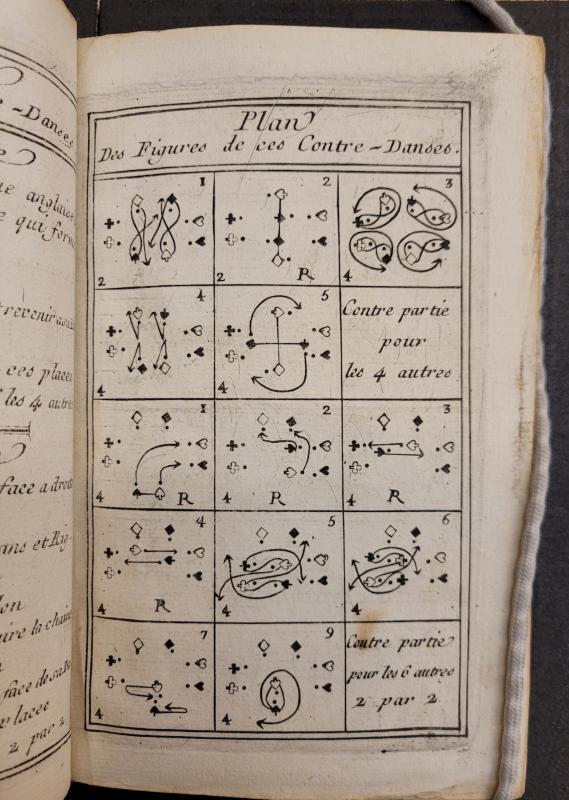 -Danses
ue anglaise
e qui form
trevenir au
ces places
les 4 autres
face a droit
ans et Rig-
faire la chaine
face de sa
places
2 par 2
Plan
Des Figures de ces Contre-Danses.
1
2
2
2
R
3
4
4
4
5
4
Contre partie
pour
les 4 autres
1
4
R
2
4
R
3
4
R
4
4
R
5
4
6
4
7
4
9
4
Contre partie
pour les 6 autres
2 par 2